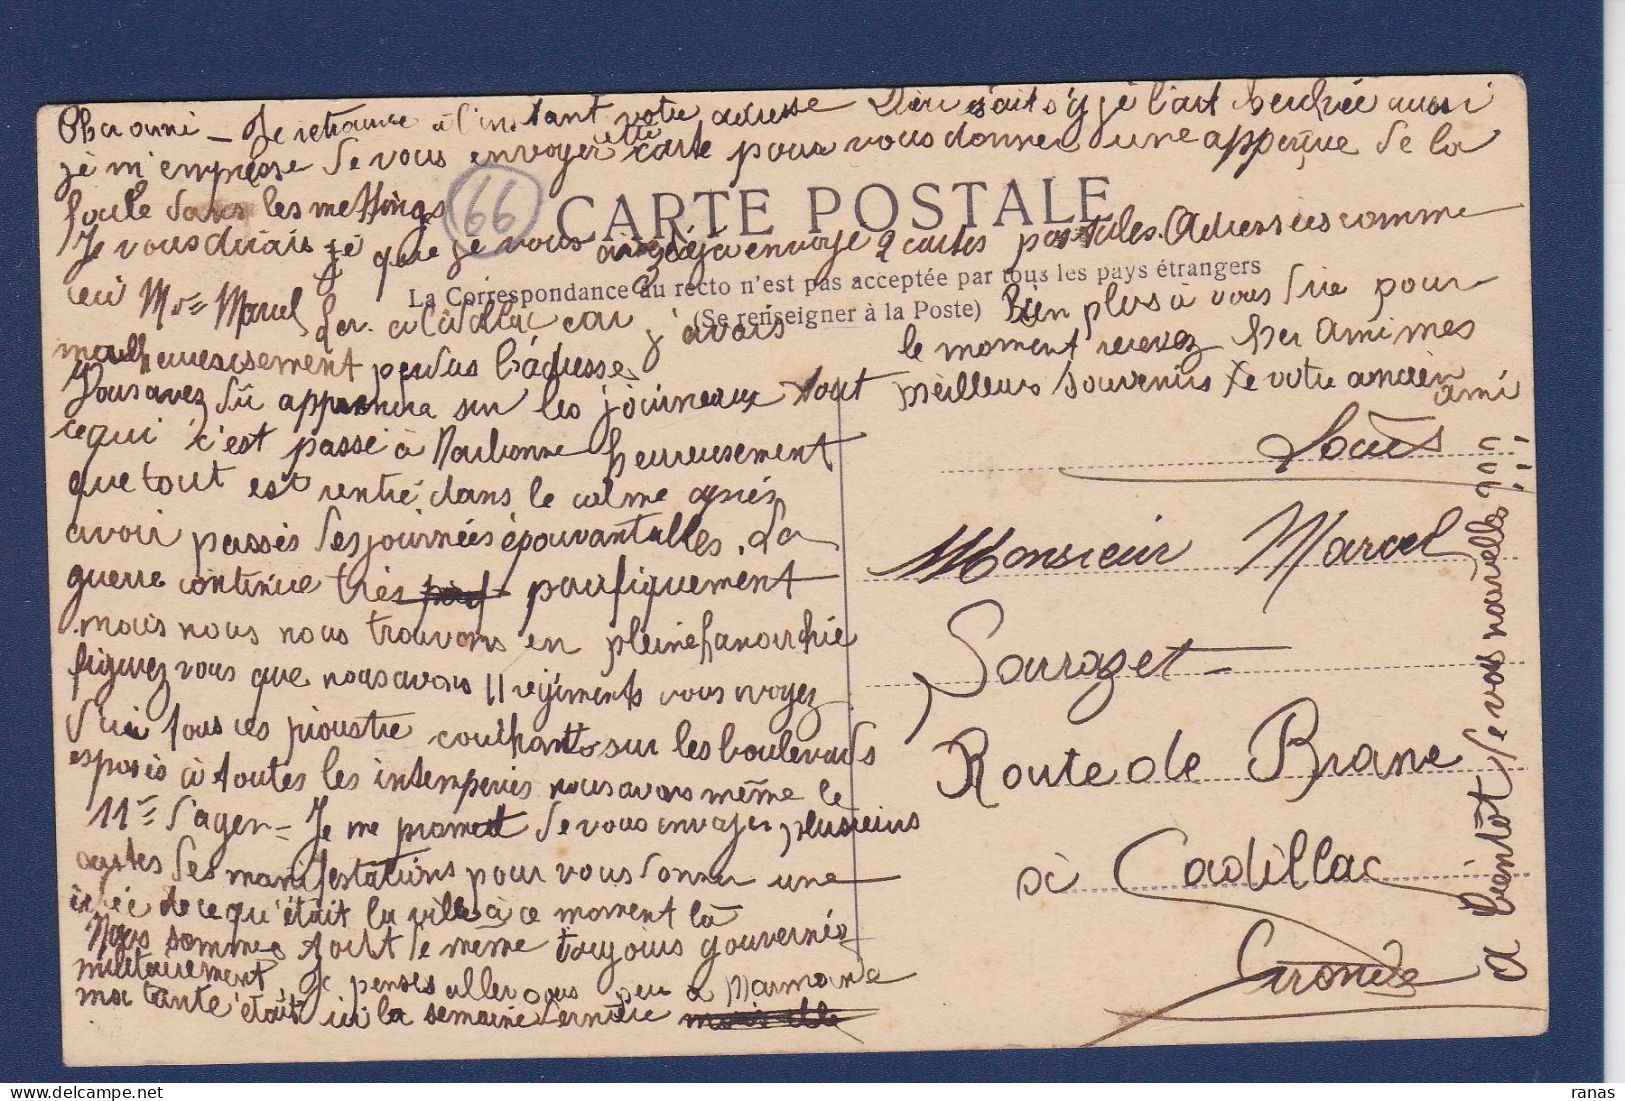 Cher ami — Je retrouve à l'instant votre adresse Dieu sait s'y je l'ait cherchée aussi
je m'empresse de vous envoyer cette carte pour vous donner une apperçue de la
foule dans les mettings
66
CARTE POSTALE
Je vous dirais que je vous ai déja envoyé 2 cartes postales. Adressées comme
La Correspondance au recto n'est pas acceptée par tous les pays étrangers
(Se renseigner à la Poste)
ceci Mr Marcel à Cadillac car j'avais
malheureusement perdus l'adresse
Vous avez dû apprendre sur les journeaux tout
ce qui c'est passé à Narbonne heureusement
que tout est rentré dans le calme après
avoir passés des journées épouvantables. La
guerre continue très pacifiquement
mais nous nous trouvons en pleine anarchie
figurez vous que nous avons 11 régiments vous voyez
d'ici tous ces pioustre couchant sur les boulevards
exposés à toutes les intemperies nous avons même le
11e d'Agen — Je me promet de vous envoyer plusieurs
cartes des manifestations pour vous donner une
idée de ce qu'était la ville à ce moment là
Nous sommes tout de même toujours gouvernés
militairement Je penses aller sous peu a Marmande
ma tante était ici la semaine dernière
Rien plus à vous dire pour
le moment recevez cher ami mes
meilleurs souvenirs de votre ancien
ami
Louis
Monsieur Marcel
Sarrazet
Route de Brane
à Cadillac
Gironde
A bientôt de vos nouvelles !!!
ranas